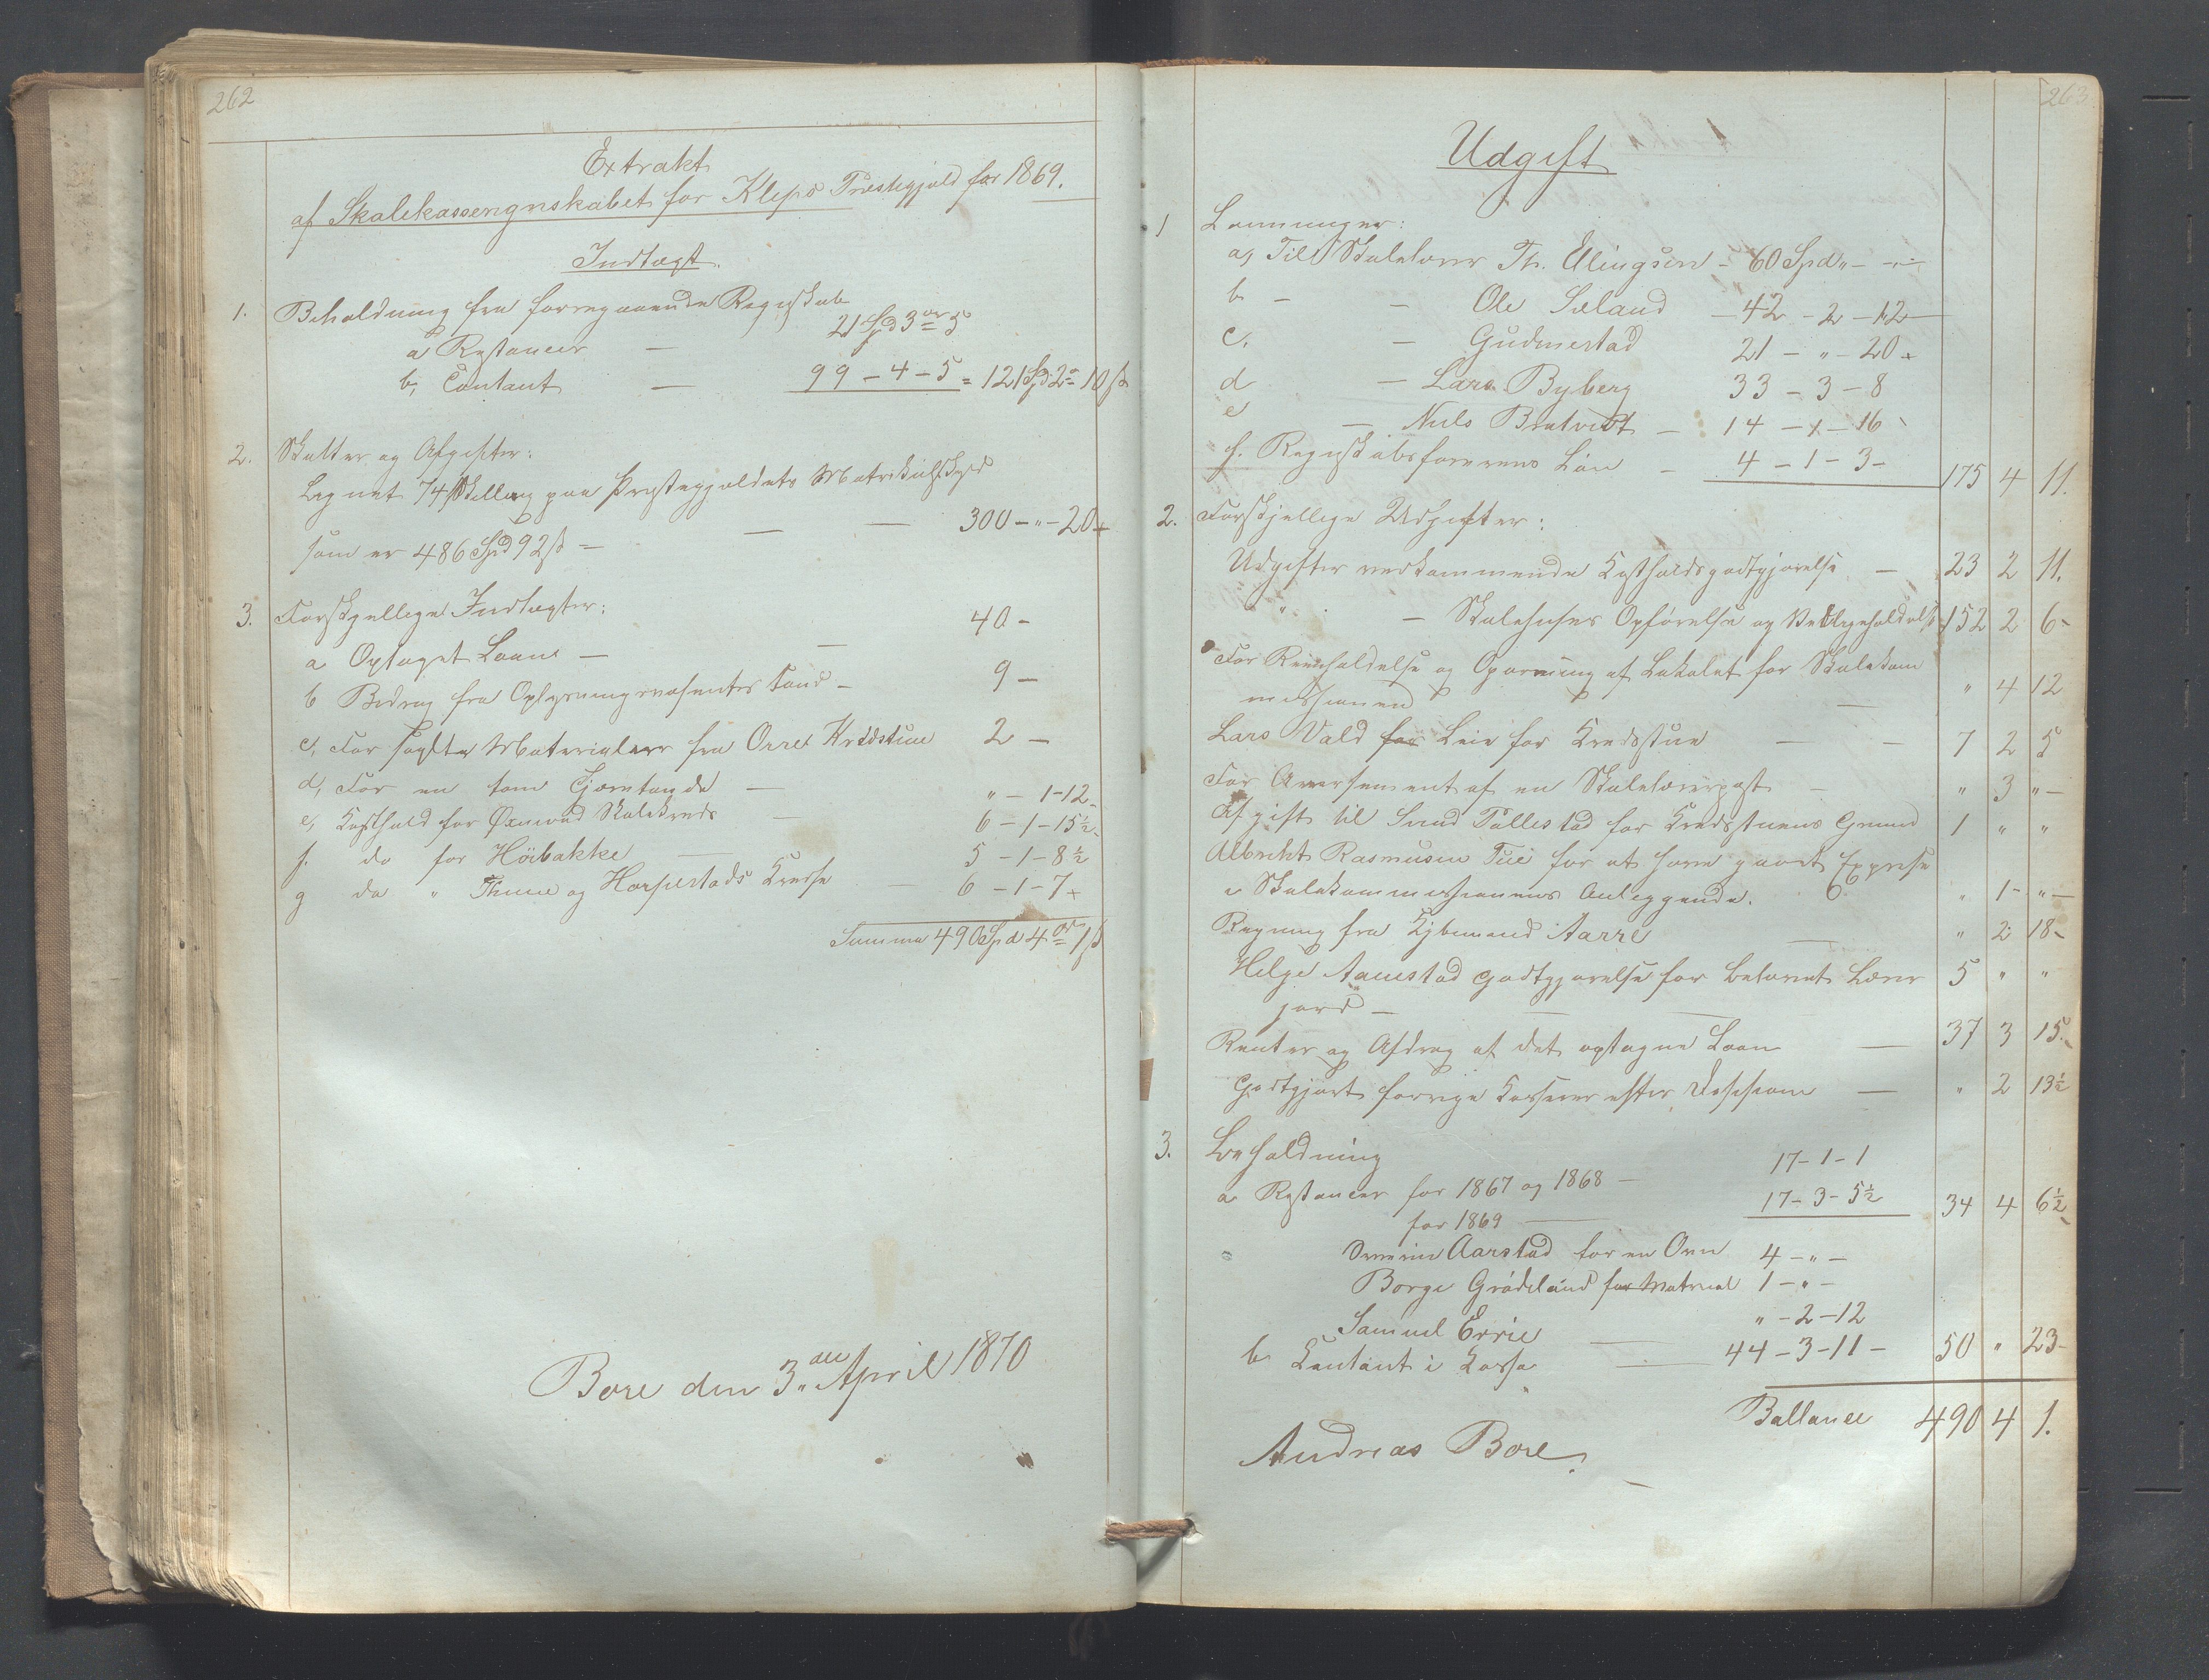 262
Extrakt
af Skolekasseregnskabet for Klepps Præstegjæld for 1869.
Indtægt.
1. Beholdning fra foregaaende Regnskab
a Restancer — 21 Spd 3 or 5
b, Contant — 99 - 4 - 5 = 121 Spd 2 o 10 ß
2. Skatter og Afgifter:
Lignet 74 Skilling paa Præstegjeldets Matrikulskyld
som er 486 Spd 92 ß — — — 300 - " - 20
3. Forskjellige Indtægter:
a Optaget Laane — — 40 -
b Bidrag fra Oplysningsvæsenets Fond - 9 -
c, For solgte Materialier fra Orre Kredstue 2 -
d, For en tom Tjæretønde — " - 1 - 12
e, Kosthold for Øxnevad Skolekreds — 6 - 1 - 15 ½
f. do for Höibakke — 5 - 1 - 8 ½
g do " Thuue og Horpestads Kredse — 6 - 1 - 7
Summa 490 Spd 4 or 1 ß
Bore den 3. den April 1870
263
Udgift
1 Lønninger:
a, Til Skolelærer Th. Elingsen - 60 Spd " - -
b - - Ole Sæland - 42 - 2 - 12
c. - Gudmestad 21 - " - 20
d - Lars Byberg 33 - 3 - 8
e - Niels Bratvedt - 14 - 1 - 16
f. Regnskabsførerens Løn - 4 - 1 - 3 - 175 4 11.
2. Forskjellige Udgifter:
Udgifter vedkommende Kostholdsgodtgjørelse — 23 2 11.
" - Skolehuses Opførelse og Vedligeholdelse 152 2 6
For Reenholdelse og Opvarming af Lokalet for Skolekom
missionen — " 4 12
Lars Vold for Leie for Kredsstue — — 7 2 5
For Avertisement af en Skolelærerpost — " 3 " -
Afgift til Svend Tallestad for Kredsstuens Grund 1 " "
Albrekt Rasmusen Tue for at have gaaet Expresse
i Skolekommissionens Anliggende. " 1 - " -
Regning fra Kjbmand Aarre — " 2 18
Helge Aanestad godtgjørelse for Lærer
jord — — — 5 " "
Renter og Afdrag af det optagne Laan — 37 3 15
Godtgjort forrige Kasserer efter Desision — " 2 13 ½
3. Beholdning
a Restancer for 1867 og 1868 — 17 - 1 - 1
for 1869 — 17 - 3 - 5 ½ 34 4 6 ½
Aarstad for en Ovn 4 - " -
Borge Grödeland for Matrial 1 - " -
Samuel Errie " - 2 - 12
b Contant i Kassa — 44 - 3 - 11 - 50 " 23
Ballance 490 4 1.
Andreas Bore.